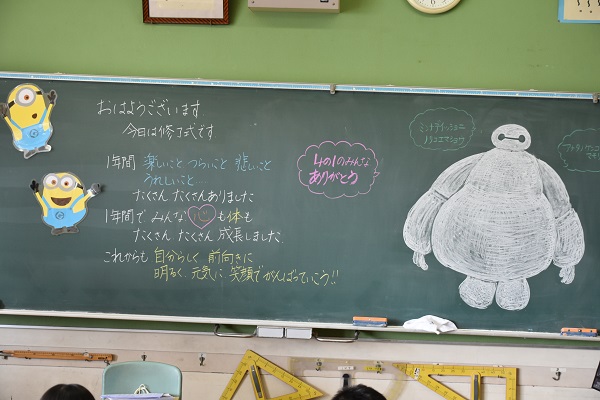 おはようございます
今日は修了式です
1年間 楽しいこと つらいこと 悲しいこと
うれしいこと
たくさん たくさんありました
1年間で みんな 心 も 体も
たくさん たくさん 成長しました
これからも 自分らしく 前向きに
明るく、元気に 笑顔で がんばっていこう!!
4の1のみんな
ありがとう